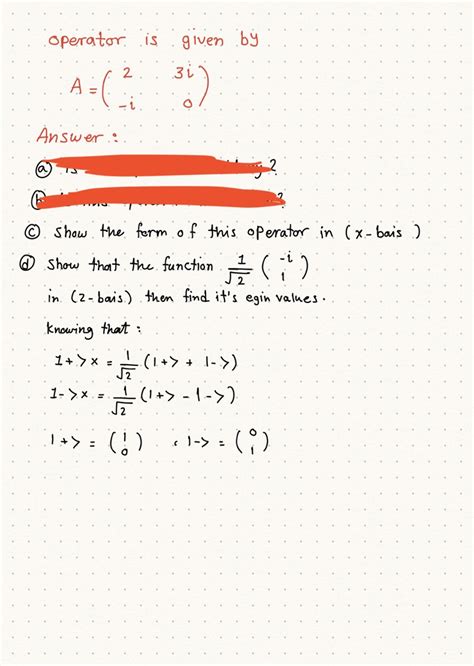 operator is given by
A = ( 2 3i
-i 0 )
Answer :
(a) ?
(b) ?
(c) Show the form of this operator in (x-bais )
(d) Show that the function 1/√2 ( -i
1 )
in (z-bais) then find it's egin values.
Knowing that :
|+>x = 1/√2 (|+> + |->)
|->x = 1/√2 (|+> - |->)
|+> = ( 1
0 ) , |-> = ( 0
1 )